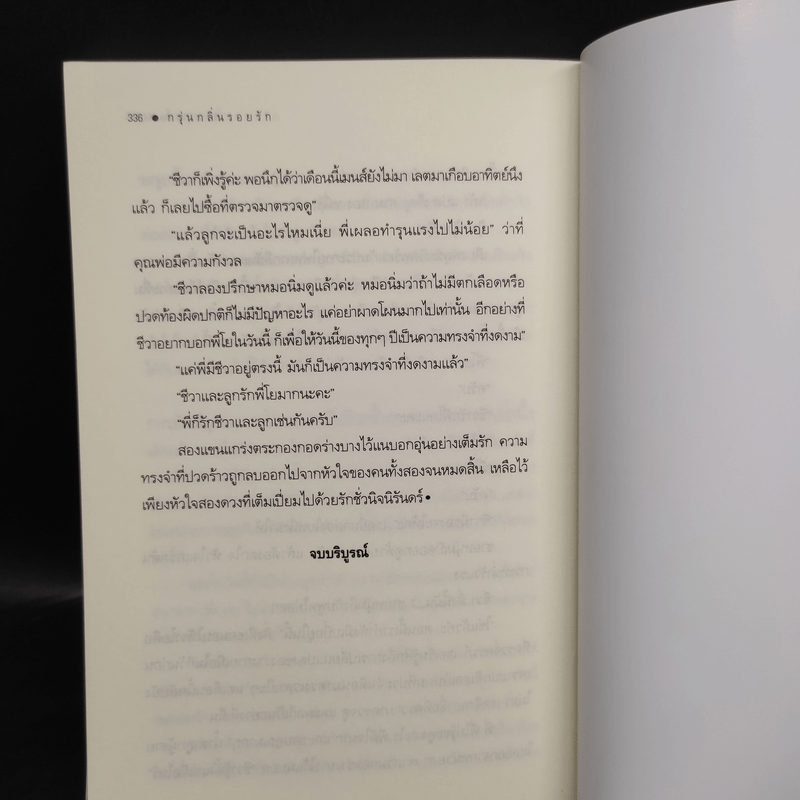 336 ● กรุ่นกลิ่นรอยรัก
"ชีวาก็เพิ่งรู้ค่ะ พอนึกได้ว่าเดือนนี้เมนส์ยังไม่มา เลตมาเกือบอาทิตย์นึง
แล้ว ก็เลยไปซื้อที่ตรวจมาตรวจดู"
"แล้วลูกจะเป็นอะไรไหมเนี่ย พี่เผลอทำรุนแรงไปไม่น้อย" ว่าที่
คุณพ่อมีความกังวล
"ชีวาลองปรึกษาหมอนิ่มดูแล้วค่ะ หมอนิ่มว่าถ้าไม่มีตกเลือดหรือ
ปวดท้องผิดปกติก็ไม่มีปัญหาอะไร แค่อย่าผาดโผนมากไปเท่านั้น อีกอย่างที่
ชีวาอยากบอกพี่โยในวันนี้ ก็เพื่อให้วันนี้ของทุกๆ ปีเป็นความทรงจำที่งดงาม"
"แค่พี่มีชีวาอยู่ตรงนี้ มันก็เป็นความทรงจำที่งดงามแล้ว"
"ชีวาและลูกรักพี่โยมากนะคะ"
"พี่ก็รักชีวาและลูกเช่นกันครับ"
สองแขนแกร่งตระกองกอดร่างบางไว้แนบอกอุ่นอย่างเต็มรัก ความ
ทรงจำที่ปวดร้าวถูกลบออกไปจากหัวใจของคนทั้งสองจนหมดสิ้น เหลือไว้
เพียงหัวใจสองดวงที่เต็มเปี่ยมไปด้วยรักชั่วนิจนิรันดร์●
จบบริบูรณ์